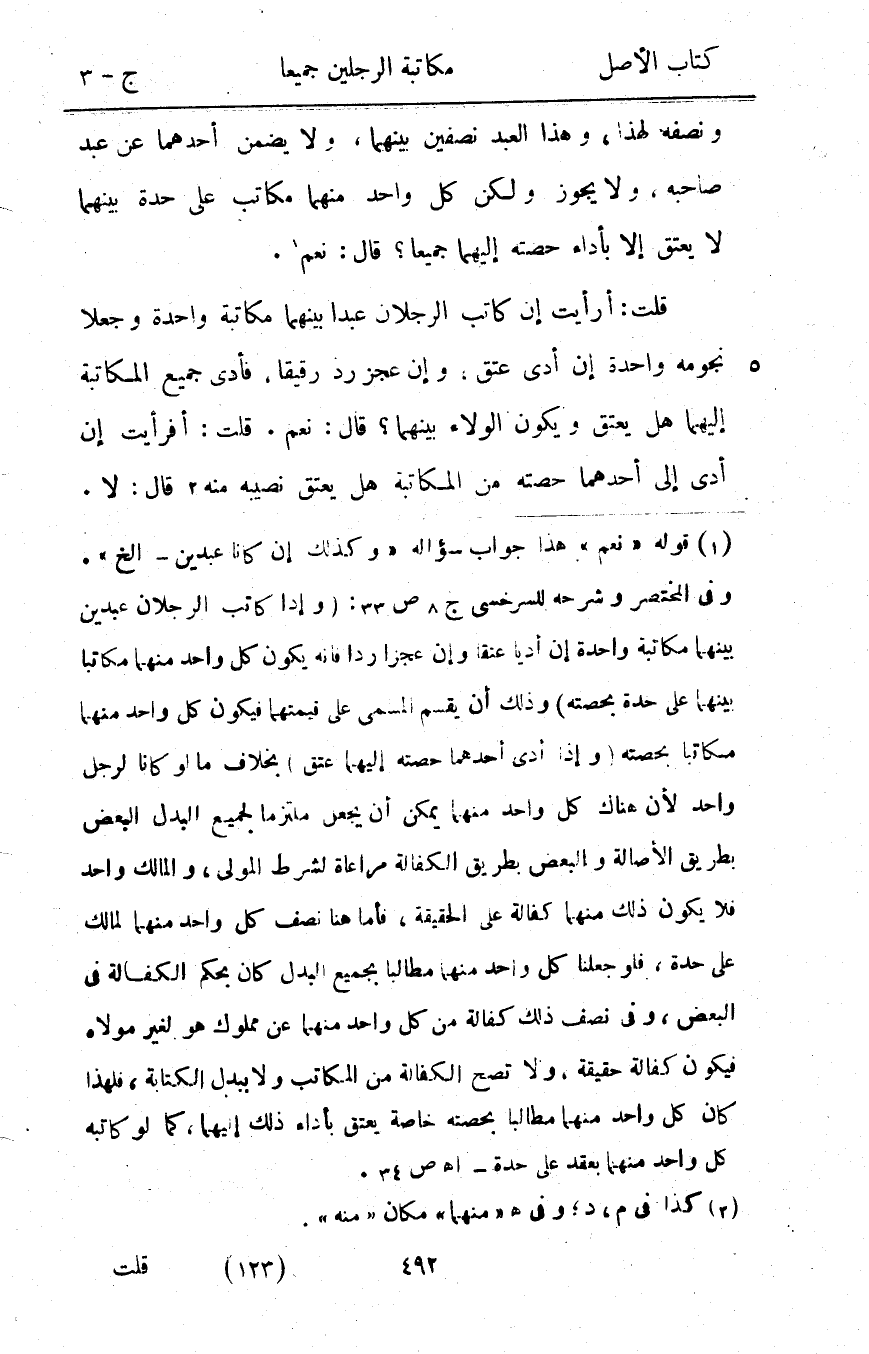 كتاب الأصل مكاتبة الرجلين جميعا ج - ٣
و نصفه لهذا، و هذا العبد نصفين بينهما، و لا يضمن أحدهما عن عبد
صاحبه، و لا يجوز و لكن كل واحد منهما مكاتب على حدة بينهما
لا يعتق إلا بأداء حصته إليهما جميعا؟ قال: نعم١ .
قلت: أرأيت إن كاتب الرجلان عبدا بينهما مكاتبة واحدة و جعلا
نجومه واحدة إن أدى عتق، و إن عجز رد رقيقا، فأدى جميع المكاتبة ٥
إليهما هل يعتق و يكون الولاء بينهما؟ قال: نعم . قلت: أفرأيت إن
أدى إلى أحدهما حصته من المكاتبة هل يعتق نصيبه منه٢ قال: لا .
(١) قوله «نعم» هذا جواب سؤاله «و كذلك إن كانا عبدين - الخ» .
و فى المختصر و شرحه للسرخسى ج ٨ ص ٣٣: (و إذا كاتب الرجلان عبدين
بينهما مكاتبة واحدة إن أديا عتقا و إن عجزا ردا فانه يكون كل واحد منهما مكاتبا
بينهما على حدة بحصته) و ذلك أن يقسم المسمى على قيمتهما فيكون كل واحد منهما
مكاتبا بحصته (و إذا أدى أحدهما حصته إليهما عتق) بخلاف ما لو كانا لرجل
واحد لأن هناك كل واحد منهما يمكن أن يجعل ملتزما لجميع البدل البعض
بطريق الأصالة و البعض بطريق الكفالة مراعاة لشرط المولى، و المالك واحد
فلا يكون ذلك منهما كفالة على الحقيقة، فأما هنا نصف كل واحد منهما لمالك
على حدة، فلو جعلنا كل واحد منهما مطالبا بجميع البدل كان بحكم الكفالة فى
البعض، و فى نصف ذلك كفالة من كل واحد منهما عن مملوك هو لغير مولاه
فيكون كفالة حقيقة، و لا تصح الكفالة من المكاتب و لا ببدل الكتابة، فلهذا
كان كل واحد منهما مطالبا بحصته خاصة يعتق بأداء ذلك إليهما، كما لو كاتبه
كل واحد منهما بعقد على حدة - اه ص ٣٤ .
(٢) كذا فى م، د؛ و فى ه «منهما» مكان «منه» .
٤٩٢ (١٢٣) قلت